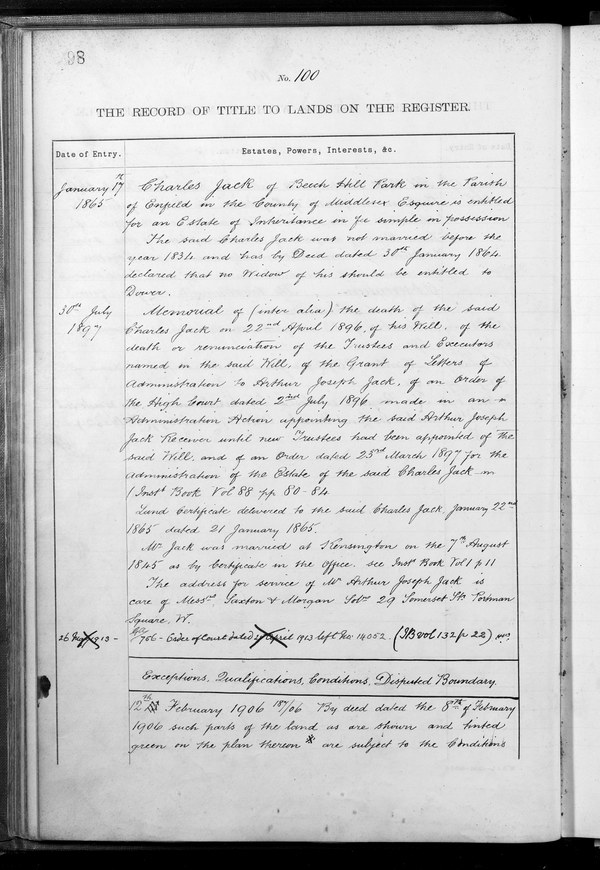 98
No. 100
THE RECORD OF TITLE TO LANDS ON THE REGISTER.
Date of Entry.
Estates, Powers, Interests, &c.
January 17th
1865
Charles Jack of Beech Hill Park in the Parish
of Enfield in the County of Middlesex Esquire is entitled
for an Estate of Inheritance in fee simple in possession
The said Charles Jack was not married before the
year 1834 and has by Deed dated 30th January 1864
declared that no Widow of his should be entitled to
Dower.
30th July
1897
Memorial of (inter alia) the death of the said
Charles Jack on 22nd April 1896, of his Will, of the
death or renunciation of the Trustees and Executors
named in the said Will, of the Grant of Letters of
Administration to Arthur Joseph Jack, of an Order of
the High Court dated 2nd July 1896 made in an
Administration Action appointing the said Arthur Joseph
Jack Receiver until new Trustees had been appointed of the
said Will and of an Order dated 23rd March 1897 for the
administration of the Estate of the said Charles Jack in
Inst. Book Vol 88 pp 80-84
Land Certificate delivered to the said Charles Jack, January 22nd
1865 dated 21 January 1865.
Mr Jack was married at Kensington on the 7th August
1845 as by Certificate in the Office. see Inst. Book Vol 1 p 11
The address for service of Mr Arthur Joseph Jack is
care of Messrs Saxton & Morgan Solrs 29 Somerset St. Portman
Square, W.
26 1913 -
706 - Order of Court dated April 1903 left No. 14052. (IB vol 132 p 22)
Exceptions, Qualifications, Conditions, Disputed Boundary.
12th February 1906 187/06 By deed dated the 8th of February
1906 such parts of the land as are shown and tinted
green on the plan thereon are subject to the Conditions